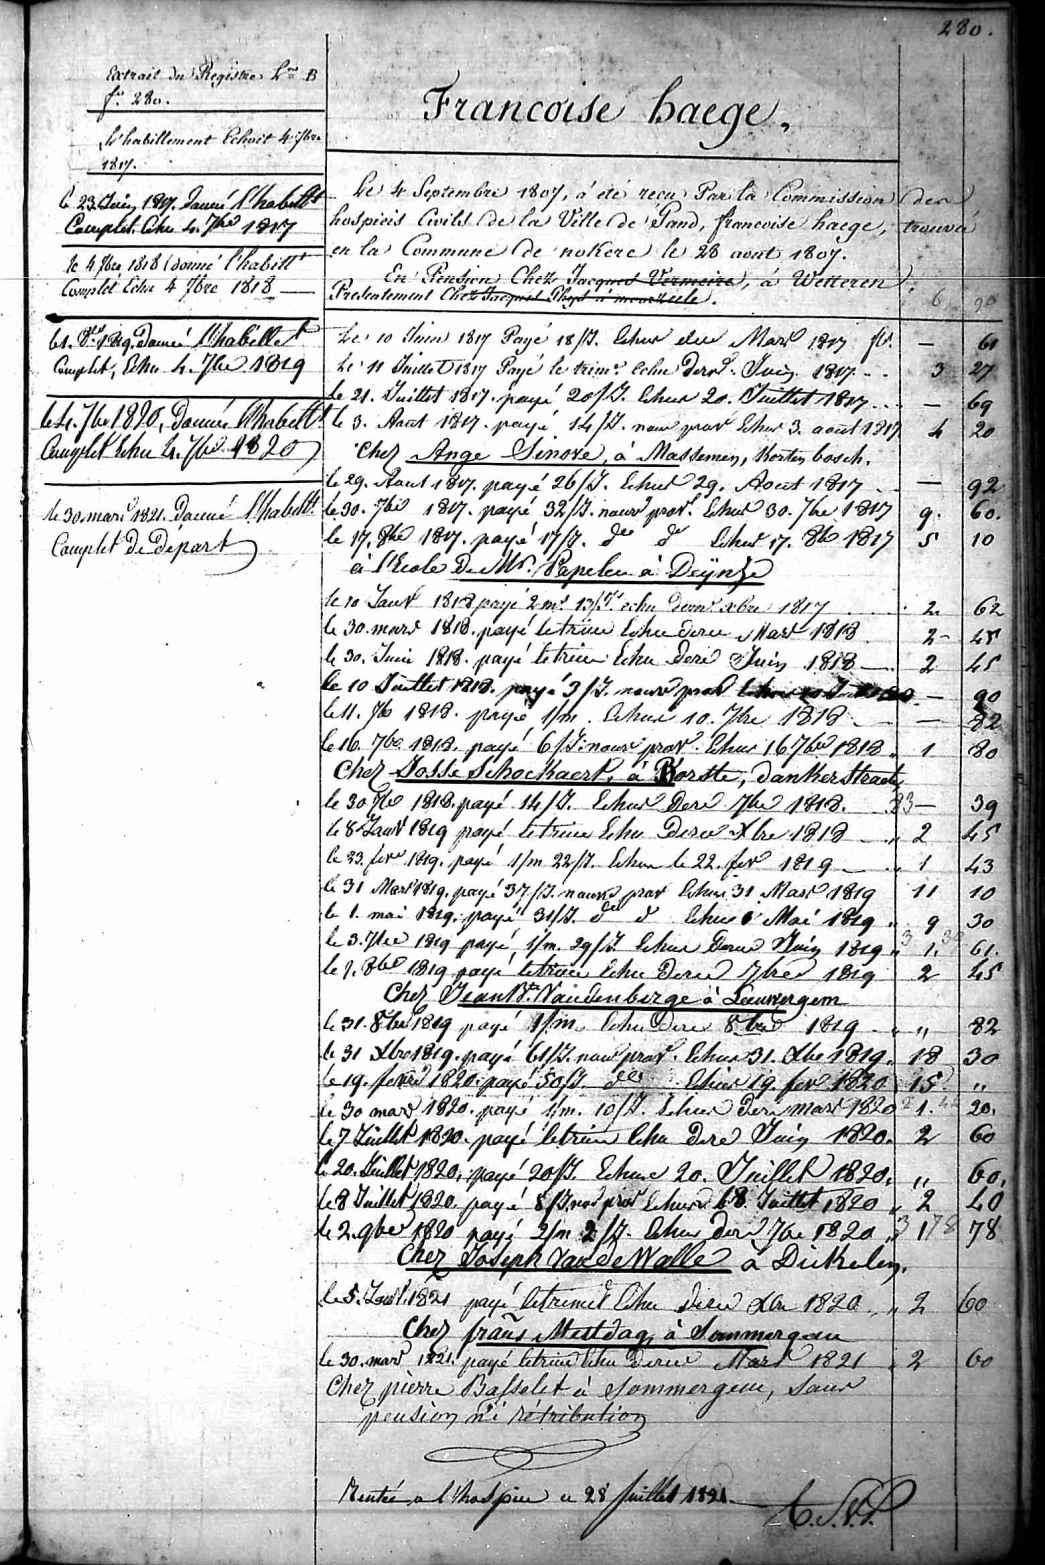 280.
Extrait du Registre L.re B
f.o 280.
L'habillement Echoit 4. 7bre
1817.
le 23 Juin 1817. Donné l'habillt
Complet Echu le 4. 7bre 1817
le 4 7bre 1818 donné l'habillt
Complet Echu 4 7bre 1818
1819. Donné l'habillet
Complet, Echu 4. 7bre 1819
le 4. 7bre 1820, Donné l'habillt
Complet Echu 4. 7bre 1820
le 30. mars 1821. Donné l'habillt
Complet De Depart
Francoise haege,
Le 4 Septembre 1807, a été recu Par la Commission des
hospices Civils de la Ville de Gand, francoise haege, trouvée
en la Commune de nokere le 28 aout 1807.
En Pension Chez Jacques Vermeire, à Wetteren
Presentement Chez Jacques
6 90
Le 10 Juin 1817 Payé 18/J. Echus Mars 1817 fl. — 61
Le 11 Juillet 1817 Payé le trim. echu Dern. Juin 1817 - - 3 27
le 21. Juillet 1817. payé 20/J. Echus 20. Juillet 1817 - - — 69
le 3. Aout 1817. payé 14/J. nour prov Echus 3. août 1817 4 20
Chez Ange Sinove, à Massemen, Hortenbosch.
le 29. Aout 1817. payé 26/J. Echus 29. Aout 1817 - - — 92
le 30. 7bre 1817. payé 32/J. nour prov. Echus 30. 7bre 1817 9. 60.
le 17. 8bre 1817. payé 17/J. do do Echus 17. 8b 1817 5 10
à l'Ecole De Mr. Papeleu à Deÿnze
le 10 Janv 1818 payé 2 m. 13/J. echu dern xbre 1817 2. 62
le 30. mars 1818. payé le trim Echu dern Mars 1818 2 - 45
le 30. Juin 1818. payé le trim Echu Dern Juin 1818 — 2 45
le 10 Juillet 1818. payé 3/J. nour prov — 90
le 11. 7b 1818. payé 1/m. Echus 10. 7bre 1818 — — 82
le 16. 7bre 1818. payé 6/J. nour prov. Echus 16 7bre 1818 " 1 80
Chez Josse Schockaert, à Borste, Dankerstraat,
le 30 7bre 1818. payé 14/J. Echus Dern 7bre 1818. 39
le 8 Janv 1819 payé le trim Echu Dern Xbre 1818 — " 2 45
le 23. fevr 1819. payé 1/m 22/J. Echus le 22. fevr 1819 — " 1 43
le 31 Mars 1819. payé 37/J. nour prov Echus 31 Mars 1819 11 10
le 1. mai 1819. payé 31/J. do do Echus Mai 1819 " 9 30
le 3. 7bre 1819 payé 1/m. 29/J. Echus Dern Juin 1819 " 1. 61.
le 1. 8bre 1819 payé le trim Echu Dern 7bre 1819 2 45
Chez Jean Bte. Vandenberge à Leeuwergem
le 31. 8bre 1819 payé 1/m Echu Dern 8bre 1819 - " " 82
le 31 Xbre 1819. payé 61/J. nour prov. Echus 31. Xbre 1819. 18 30
le 19. fevrier 1820. payé 50/J. do Echus 19. fevr 1820 15 "
le 30 mars 1820. payé 1/m. 10/J. Echus Dern mars 1820 1. 20.
le 7 Juillet 1820. payé le trim Echu Dern Juin 1820. 2 60
le 20. Juillet 1820, payé 20/J. Echus 20. Juillet 1820. " 60.
le 8 Juillet 1820. payé 8/J. nour prov Echus 8. Juillet 1820 " 2 40
le 2. 9bre 1820 payé 2/m 2/J. Echus dern 7b 1820 " 1 78
Chez Joseph Van de Walle à Dickelen.
le 5. Janv. 1821 payé le trimet Echu dern Xbre 1820 " 2 60
Chez frañs Mestdag, à Sommergem
le 30. mars 1821. payé le trim Echu dern Mars 1821 " 2 60
Chez pierre Basselet à Sommergem, Sans
pension ni rétribution
Rentrée a l'hospice le 28 Juillet 1821